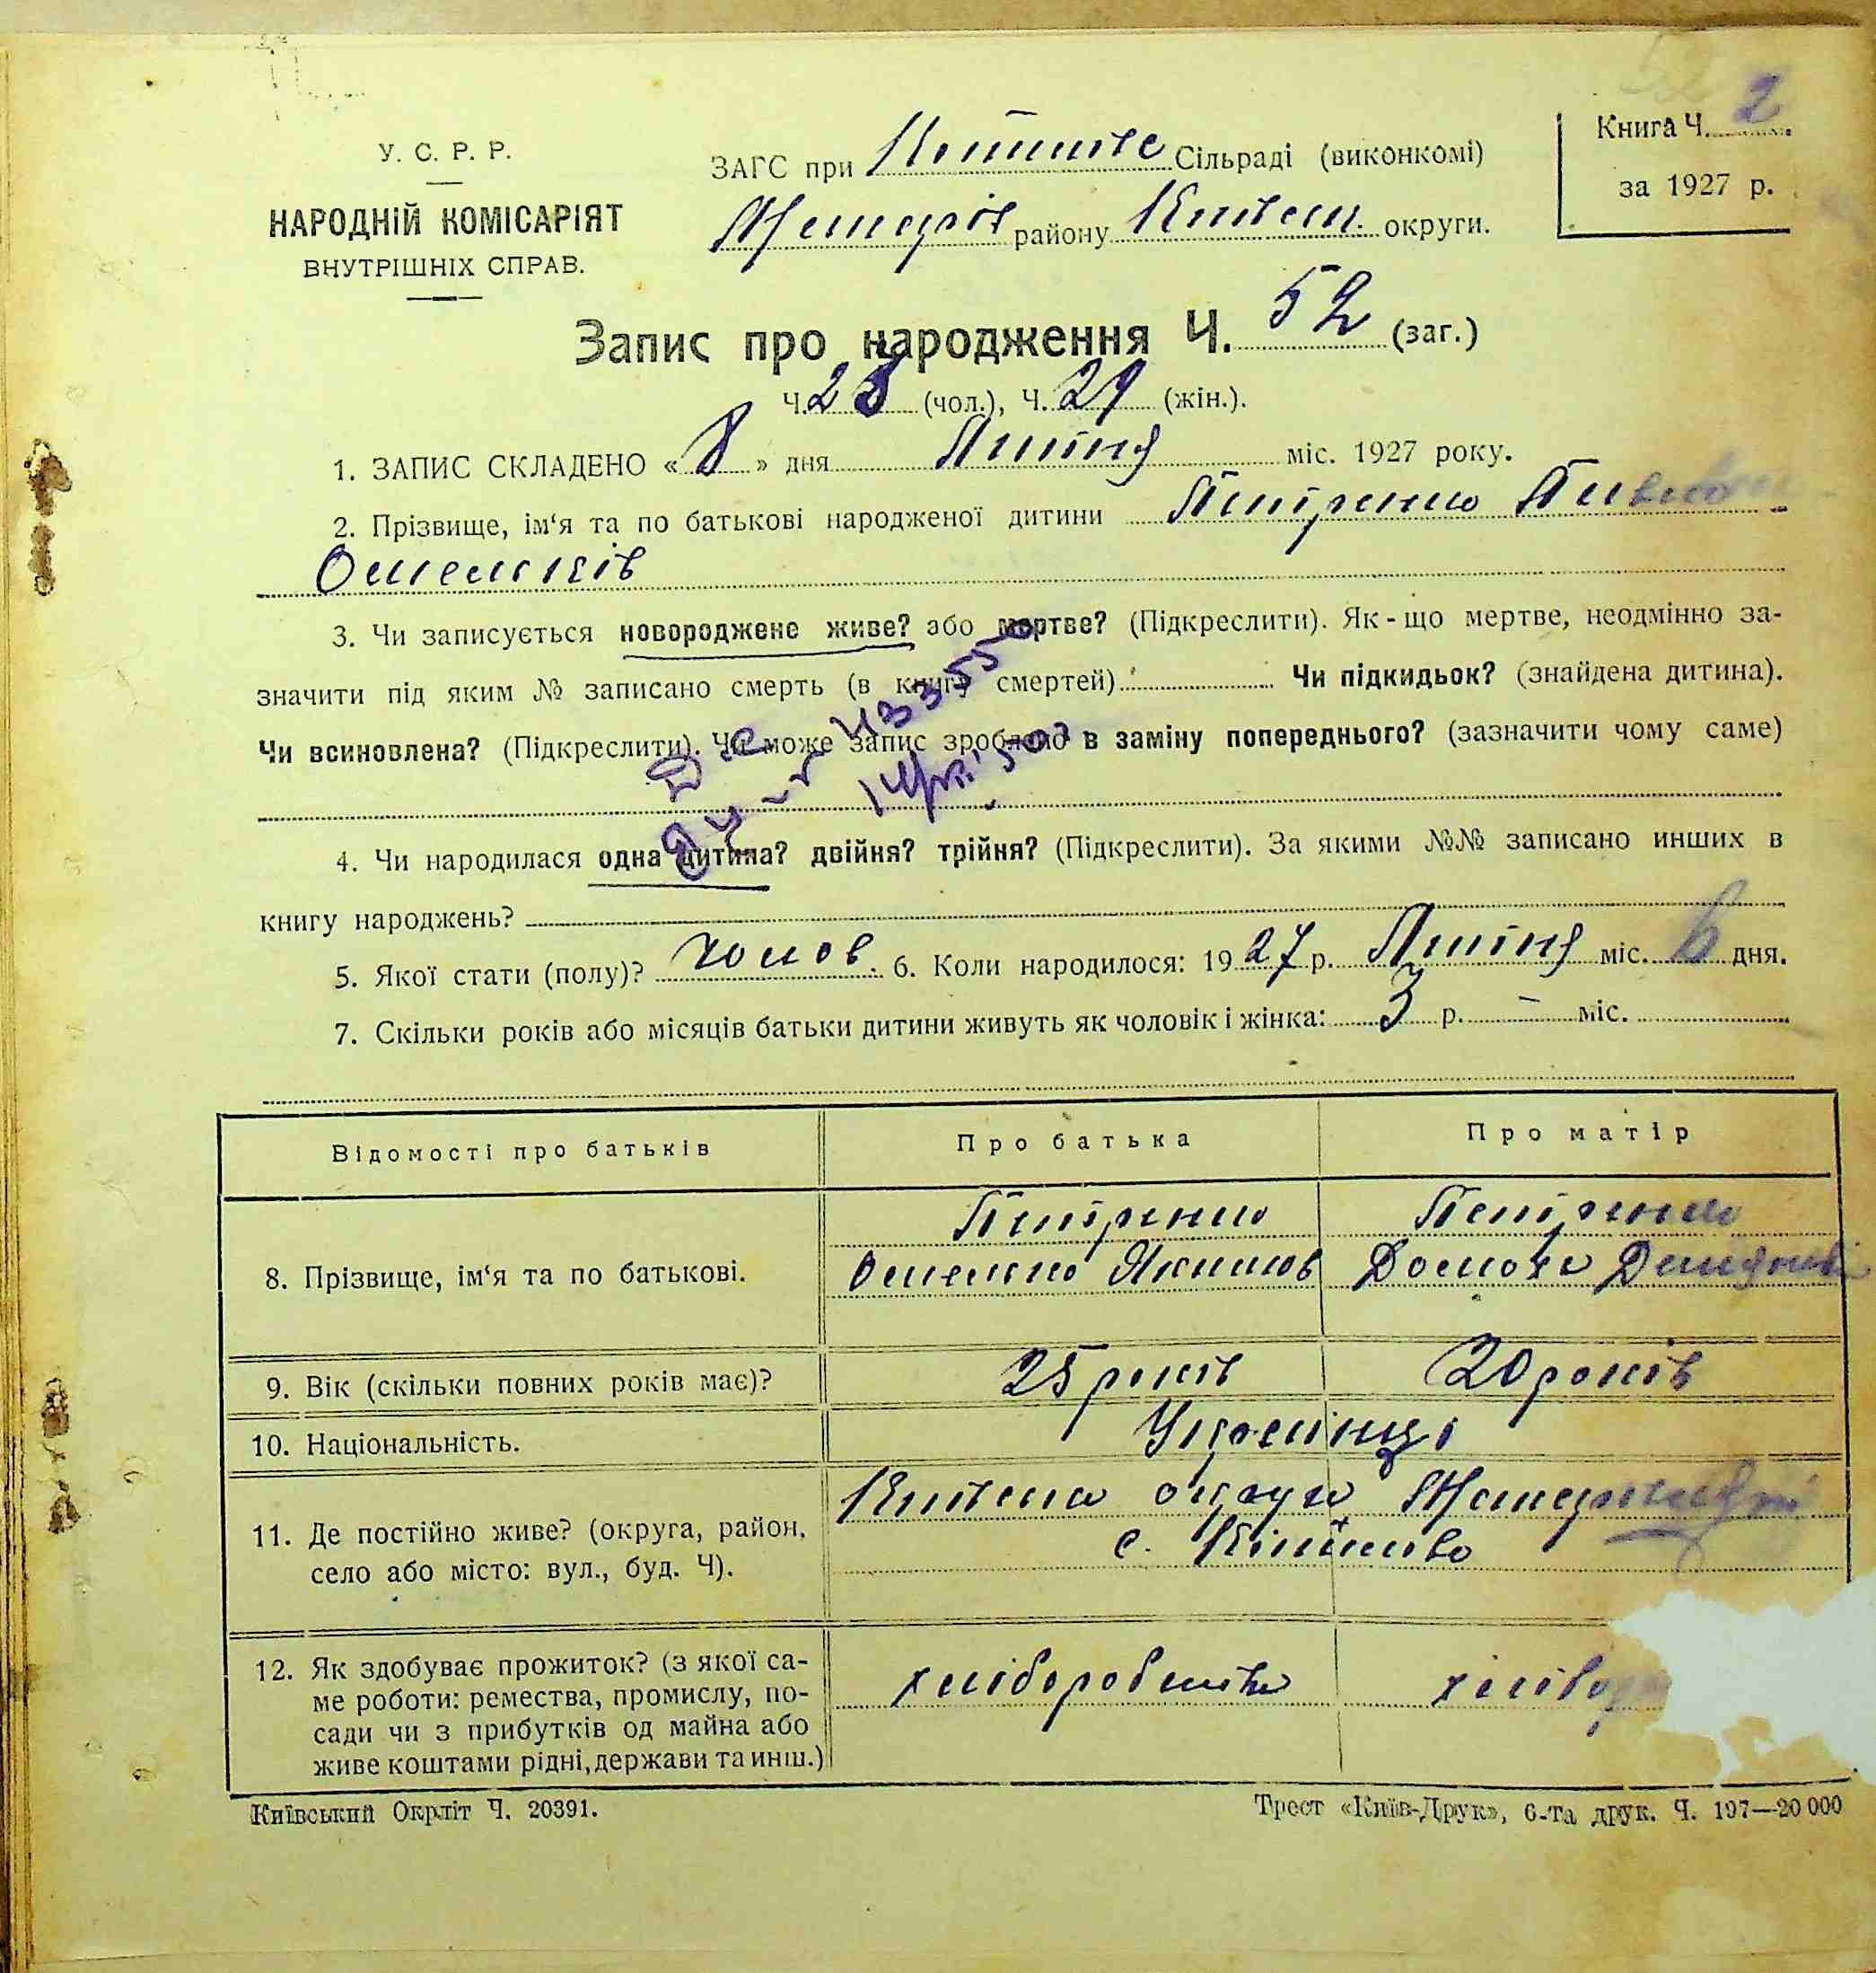 У. С. Р. Р.
НАРОДНІЙ КОМІСАРІЯТ
ВНУТРІШНІХ СПРАВ.
ЗАГС при Сільраді (виконкомі)
району округи.
Книга Ч. 2
за 1927 р.
Запис про народження Ч. 52 (заг.)
Ч. 23 (чол.), Ч. 29 (жін.).
1. ЗАПИС СКЛАДЕНО « 8 » дня Липня міс. 1927 року.
2. Прізвище, ім‘я та по батькові народженої дитини Петренко
Омельків
3. Чи записується новороджене живе? або мертве? (Підкреслити). Як-що мертве, неодмінно за-
значити під яким № записано смерть (в книгу смертей) Чи підкидьок? (знайдена дитина).
Чи всиновлена? (Підкреслити). Чи може запис зроблено в заміну попереднього? (зазначити чому саме)
4. Чи народилася одна дитина? двійня? трійня? (Підкреслити). За якими №№ записано инших в
книгу народжень?
5. Якої стати (полу)? чолов. 6. Коли народилося: 1927 р. Липня міс. 6 дня.
7. Скільки років або місяців батьки дитини живуть як чоловік і жінка: 3 р. — міс.
Відомості про батьків Про батька Про матір
8. Прізвище, ім‘я та по батькові.
Петренко Петренко
Омелько Якимов
9. Вік (скільки повних років має)? 25 років 20 років
10. Національність. Українці
11. Де постійно живе? (округа, район,
село або місто: вул., буд. Ч).
округа
с.
12. Як здобуває прожиток? (з якої са-
ме роботи: ремества, промислу, по-
сади чи з прибутків од майна або
живе коштами рідні, держави та инш.)
хліборобство
Київський Окрліт Ч. 20391.
Трест «Київ-Друк», 6-та друк. Ч. 197—20 000